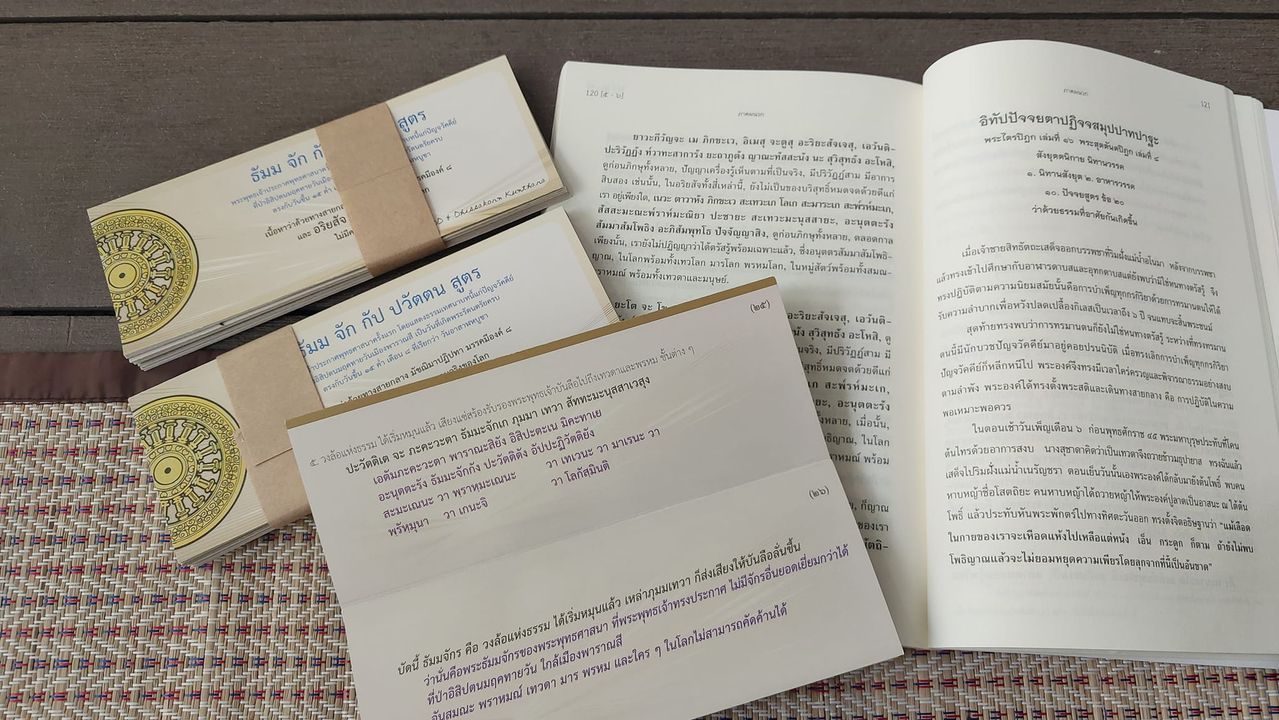 ธัมม จัก กั
สูตร
พระพุทธเจ้าประกาศพุทธศาสนา
ที่ป่าอิสิปตนมฤคทายวันเมือง
ตรงกับวันขึ้น ๑๕ ค่ำ
เนื้อหาว่าด้วยทางสายกลาง
และ อริยสัจ
ไม่มี
ธัมม จัก กัป ปวัตตน สูตร
ประกาศพุทธศาสนาครั้งแรก โดยแสดงธรรมเทศนาบทนี้แก่ปัญจวัคคีย์
ตรงกับวันขึ้น ๑๕ ค่ำ เดือน ๘ ที่เรียกว่า วันอาสาฬหบูชา
ทางสายกลาง มัชฌิมาปฏิปทา มรรคมีองค์ ๘
(๒๕)
๕. วงล้อแห่งธรรม ได้เริ่มหมุนแล้ว เสียงแซ่ซร้องรับรองพระพุทธเจ้าบันลือไปถึงเทวดาและพรหม ชั้นต่าง ๆ
ปะวัตติเต จะ ภะคะวะตา ธัมมะจักเก ภุมมา เทวา สัททะมะนุสสาเวสุง
เอตัมภะคะวะตา พาราณะสิยัง อิสิปะตะเน มิคะทาเย
อะนุตตะรัง ธัมมะจักกัง ปะวัตติตัง อัปปะฏิวัตติยัง
สะมะเณนะ วา พราหมะเณนะ วา เทเวนะ วา มาเรนะ วา
พรัหมุนา วา เกนะจิ วา โลกัสมินติ
(๒๖)
บัดนี้ ธัมมจักร คือ วงล้อแห่งธรรม ได้เริ่มหมุนแล้ว เหล่าภุมมเทวา ก็ส่งเสียงให้บันลือลั่นขึ้น
ว่านั่นคือพระธัมมจักรของพระพุทธศาสนา ที่พระพุทธเจ้าทรงประกาศ ไม่มีจักรอื่นยอดเยี่ยมกว่าได้
ที่ป่าอิสิปตนมฤคทายวัน ใกล้เมืองพาราณสี
อันสมณะ พราหมณ์ เทวดา มาร พรหม และใคร ๆ ในโลกไม่สามารถคัดค้านได้
120 [๕ - ๖]
ภาคผนวก
ยาวะกีวัญจะ เม ภิกขะเว, อิเมสุ จะตูสุ อะริยะสัจเจสุ, เอวันติ-
ปะริวัฏฏัง ท๎วาทะสาการัง ยะถาภูตัง ญาณะทัสสะนัง นะ สุวิสุทธัง อะโหสิ,
ดูก่อนภิกษุทั้งหลาย, ปัญญาเครื่องรู้เห็นตามที่เป็นจริง, มีปริวัฏฏ์สาม มีอาการ
สิบสอง เช่นนั้น, ในอริยสัจทั้งสี่เหล่านี้, ยังไม่เป็นของบริสุทธิ์หมดจดด้วยดีแก่
เรา อยู่เพียงใด, เนวะ ตาวาหัง ภิกขะเว สะเทวะเก โลเก สะมาระเก สะพ๎รัห๎มะเก,
สัสสะมะณะพ๎ราห๎มะณิยา ปะชายะ สะเทวะมะนุสสายะ, อะนุตตะรัง
สัมมาสัมโพธิง อะภิสัมพุทโธ ปัจจัญญาสิง, ดูก่อนภิกษุทั้งหลาย, ตลอดกาล
เพียงนั้น, เรายังไม่ปฏิญญาว่าได้ตรัสรู้พร้อมเฉพาะแล้ว, ซึ่งอนุตตรสัมมาสัมโพธิ-
ญาณ, ในโลกพร้อมทั้งเทวโลก มารโลก พรหมโลก, ในหมู่สัตว์พร้อมทั้งสมณ-
พราหมณ์ พร้อมทั้งเทวดาและมนุษย์.
ภาคผนวก
121
อิทัปปัจจยตาปฏิจจสมุปปาทปาฐะ
พระไตรปิฎก เล่มที่ ๑๖ พระสุตตันตปิฎก เล่มที่ ๘
สังยุตตนิกาย นิทานวรรค
๑. นิทานสังยุต ๒. อาหารวรรค
๑๐. ปัจจยสูตร ข้อ ๒๐
ว่าด้วยธรรมที่อาศัยกันเกิดขึ้น
เมื่อเจ้าชายสิทธัตถะเสด็จออกบรรพชาที่ริมฝั่งแม่น้ำอโนมา หลังจากบรรพชา
แล้วทรงเข้าไปศึกษากับอาฬารดาบสและอุทกดาบสแต่ยังพบว่ามิใช่หนทางตรัสรู้ จึง
ทรงปฏิบัติตามความนิยมสมัยนั้นคือการบำเพ็ญทุกรกิริยาด้วยการทรมานตนให้ได้
รับความลำบากเพื่อหวังปลดเปลื้องกิเลสเป็นเวลาถึง ๖ ปี จนแทบจะสิ้นพระชนม์
สุดท้ายทรงพบว่าการทรมานตนก็ยังไม่ใช่หนทางตรัสรู้ ระหว่างที่ทรงทรมาน
ตนนี้มีนักบวชปัญจวัคคีย์มาอยู่คอยปรนนิบัติ เมื่อทรงเลิกการบำเพ็ญทุกรกิริยา
ปัญจวัคคีย์ก็หลีกหนีไป พระองค์จึงทรงมีเวลาใคร่ครวญและพิจารณาธรรมอย่างสงบ
ตามลำพัง พระองค์ได้ทรงตั้งพระสติและเดินทางสายกลาง คือ การปฏิบัติในความ
พอเหมาะพอควร
ในตอนเช้าวันเพ็ญเดือน ๖ ก่อนพุทธศักราช ๔๕ พระมหาบุรุษประทับที่โคน
ต้นไทรด้วยอาการสงบ นางสุชาดาคิดว่าเป็นเทวดาจึงถวายข้าวมธุปายาส ทรงฉันแล้ว
เสด็จไปริมฝั่งแม่น้ำเนรัญชรา ตอนเย็นวันนั้นเองพระองค์ได้กลับมายังต้นโพธิ์ พบคน
หาบหญ้าชื่อโสตถิยะ คนหาบหญ้าได้ถวายหญ้าให้พระองค์ปูลาดเป็นอาสนะ ณ ใต้ต้น
โพธิ์ แล้วประทับหันพระพักตร์ไปทางทิศตะวันออก ทรงตั้งจิตอธิษฐานว่า "แม้เลือด
ในกายของเราจะเหือดแห้งไปเหลือแต่หนัง เอ็น กระดูก ก็ตาม ถ้ายังไม่พบ
โพธิญาณแล้วจะไม่ยอมหยุดความเพียรโดยลุกจากที่นี้เป็นอันขาด"